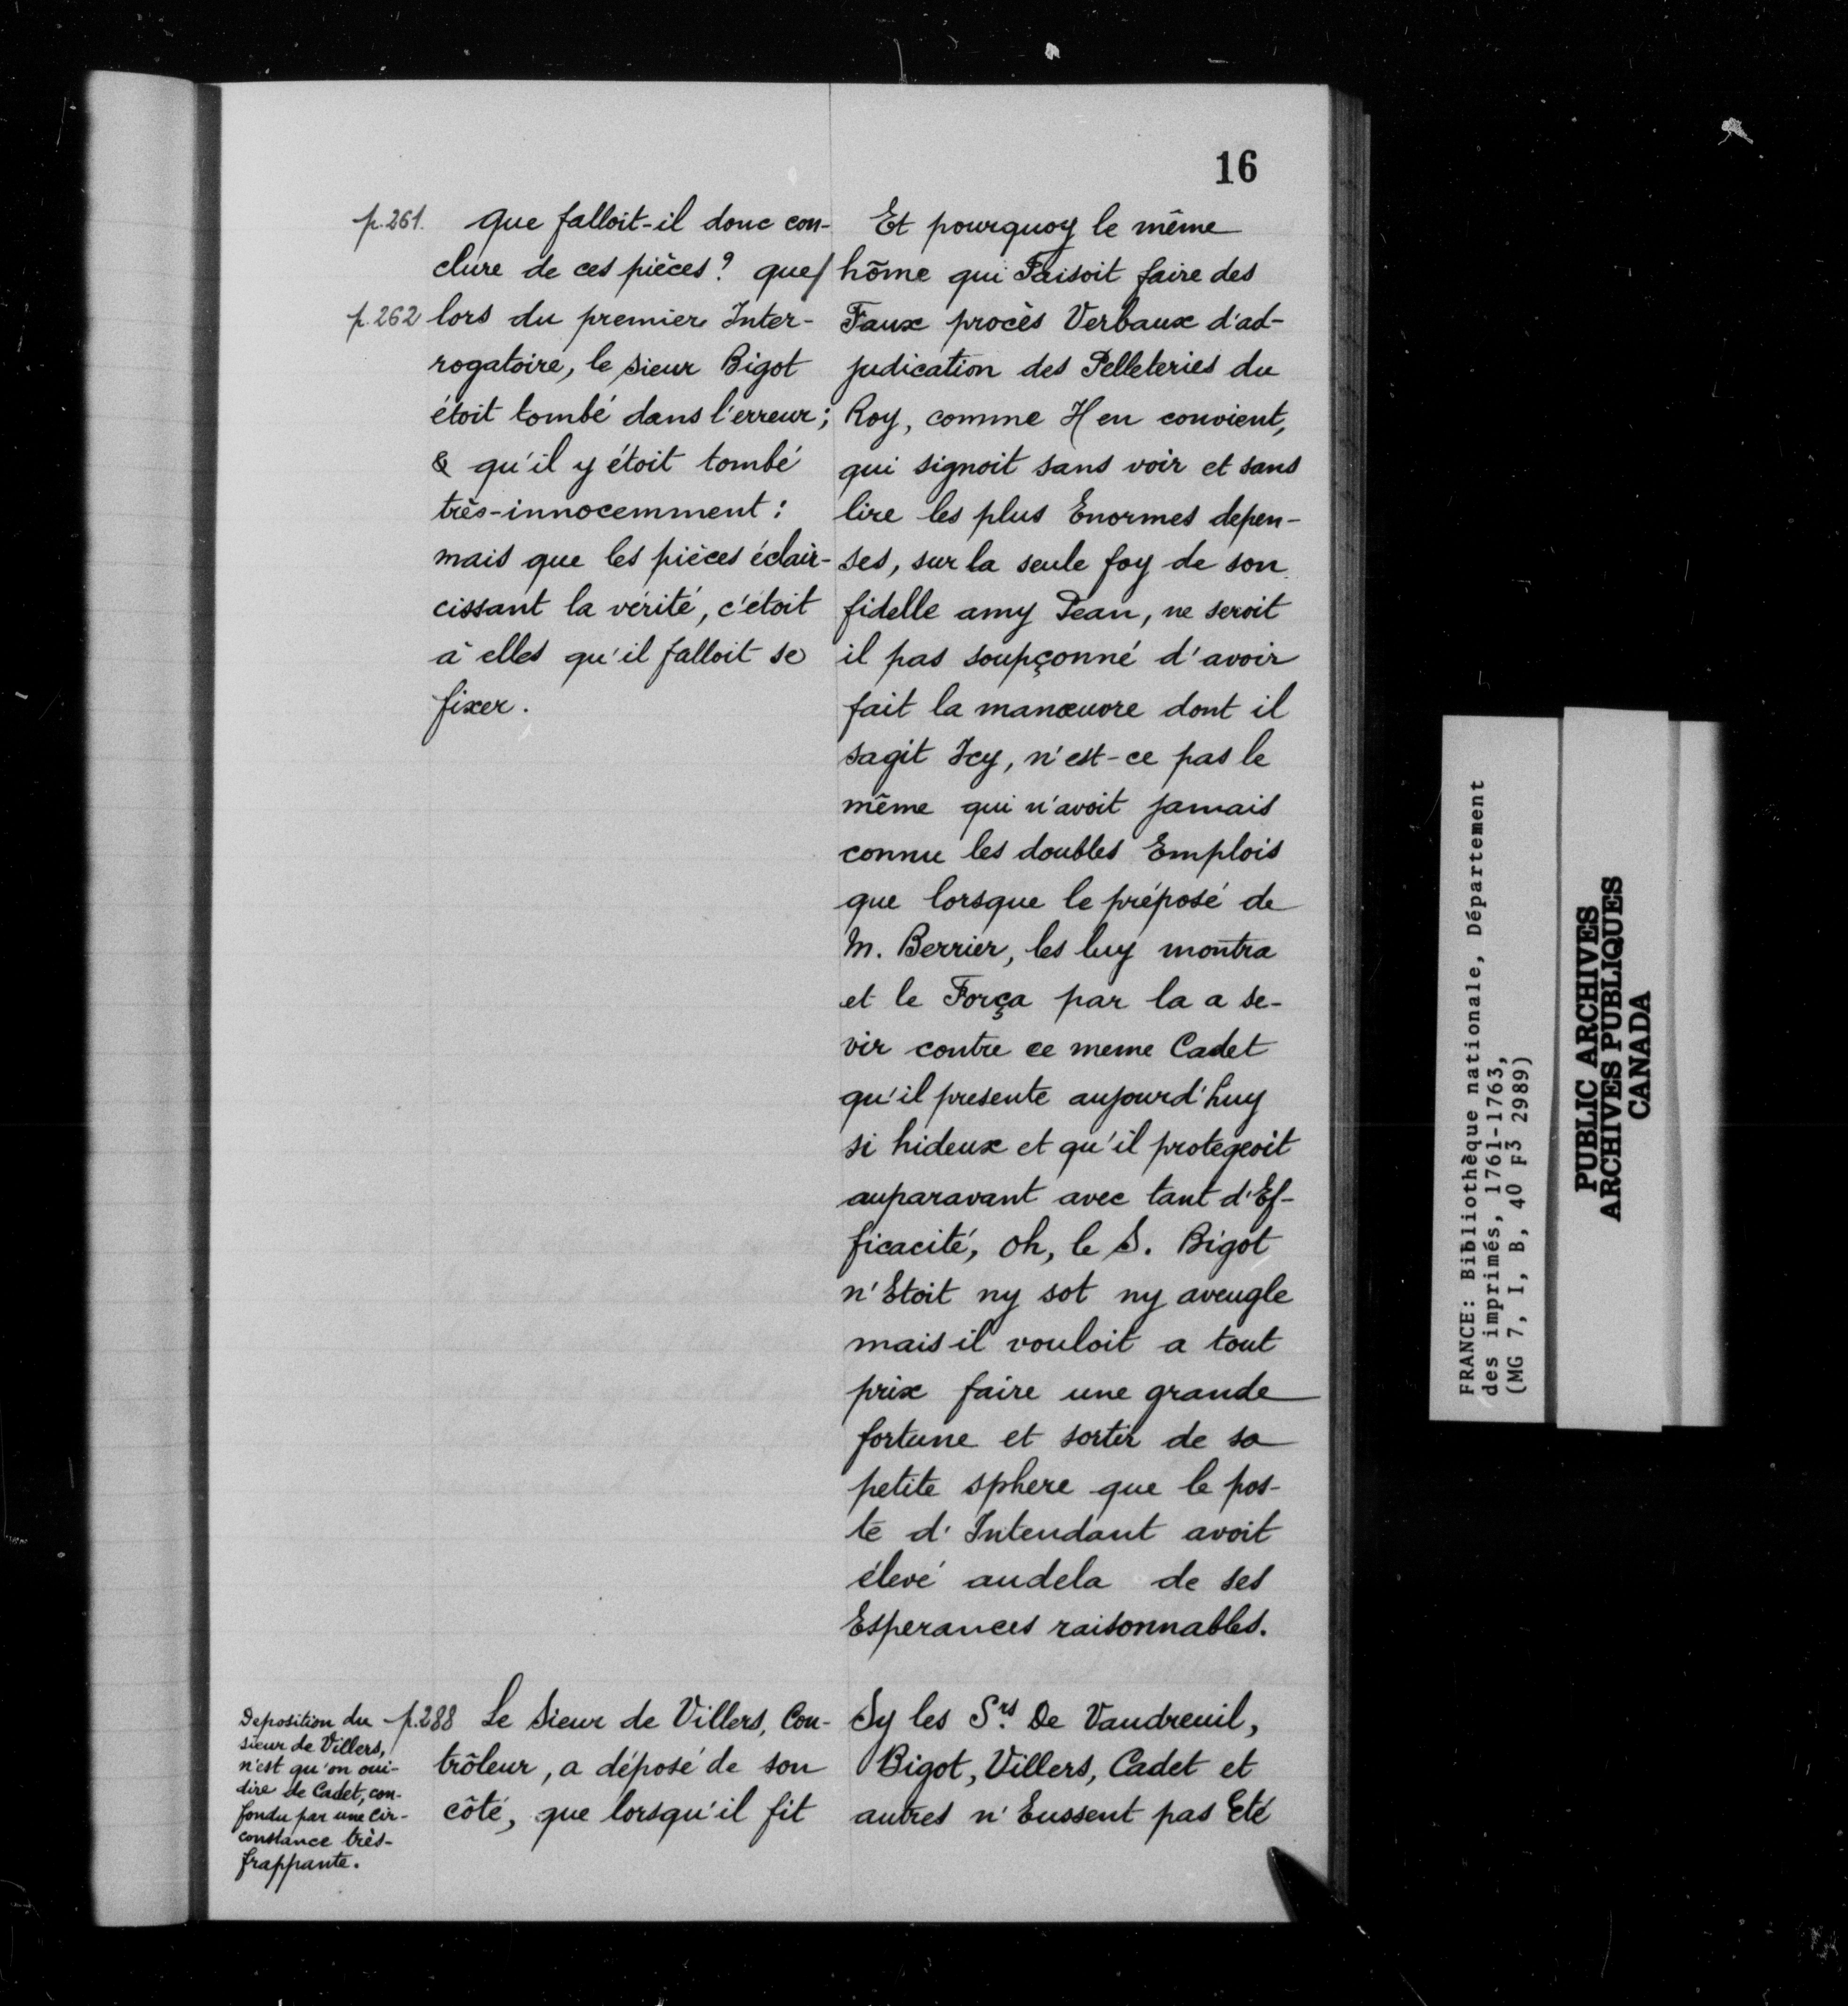 16
p.261. Que falloit-il donc con-
clure de ces pièces? que/
p.262 lors du premier Inter-
rogatoire, le sieur Bigot
étoit tombé dans l'erreur;
& qu'il y étoit tombé
très-innocemment:
mais que les pièces éclair-
cissant la vérité, c'étoit
à elles qu'il falloit se
fixer.
Et pourquoy le même
hõme qui Faisoit faire des
Faux procès Verbaux d'ad-
judication des Pelleteries du
Roy, comme Il en convient,
qui signoit sans voir et sans
lire les plus Enormes depen-
ses, sur la seule foy de son
fidelle amy Pean, ne seroit
il pas soupçonné d'avoir
fait la manœuvre dont il
sagit Icy, n'est-ce pas le
même qui n'avoit jamais
connu les doubles Emplois
que lorsque le préposé de
M. Berrier, les luy montra
et le Força par la a se-
vir contre ce meme Cadet
qu'il presente aujourd'huy
si hideux et qu'il protegeoit
auparavant avec tant d'Ef-
ficacité, oh, le S. Bigot
n'Etoit ny sot ny aveugle
mais il vouloit a tout
prix faire une grande
fortune et sortir de sa
petite sphere que le pos-
te d'Intendant avoit
élevé audela de ses
Esperances raisonnables.
Deposition du
sieur de Villers,
n'est qu'on oui-
dire de Cadet, con-
fondu par une cir-
constance très-
frappante.
p.288 Le Sieur de Villers, Con-
trôleur, a déposé de son
côté, que lorsqu'il fit
Sy les S.rs De Vaudreuil,
Bigot, Villers, Cadet et
autres n'Eussent pas Eté
FRANCE: Bibliothèque nationale, Département
des imprimés, 1761-1763,
(MG 7, I, B, 40 F3 2989)
PUBLIC ARCHIVES
ARCHIVES PUBLIQUES
CANADA